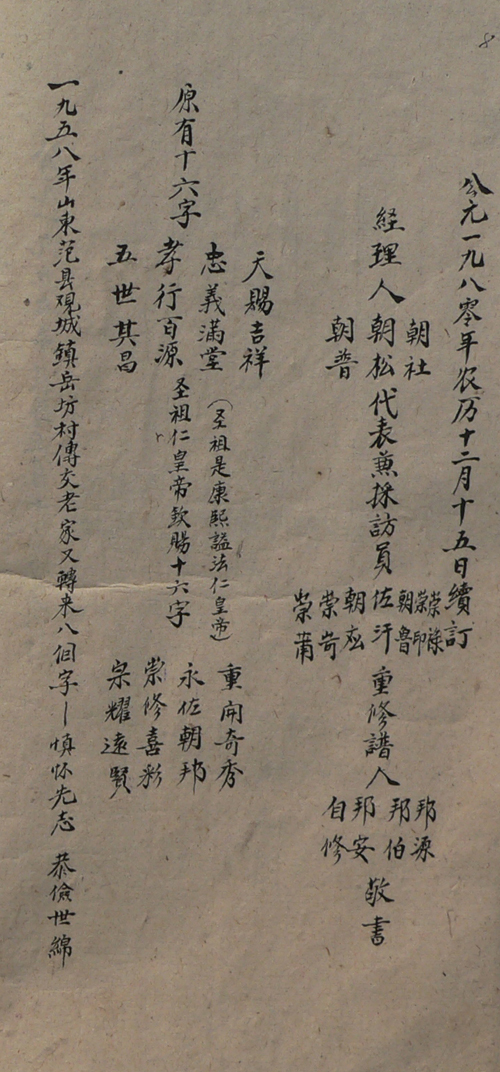 8
公元一九八零年农历十二月十五日續訂
朝社
経理人朝松代表兼採訪員
朝普
榮祿
榮印
朝魯
佐汗
朝左
榮苛
榮莆
重修譜人
邦源
邦伯
邦安
自修
敬書
天賜吉祥
忠義滿堂(圣祖是康熙謚法仁皇帝)
原有十六字 孝行百源 圣祖仁皇帝欽賜十六字
五世其昌
重開奇秀
永佐朝邦
崇修喜彩
宗耀遠賢
一九五八年山東范县观城鎮岳坊村傅交老家又轉来八個字—慎怀先志 恭儉世綿